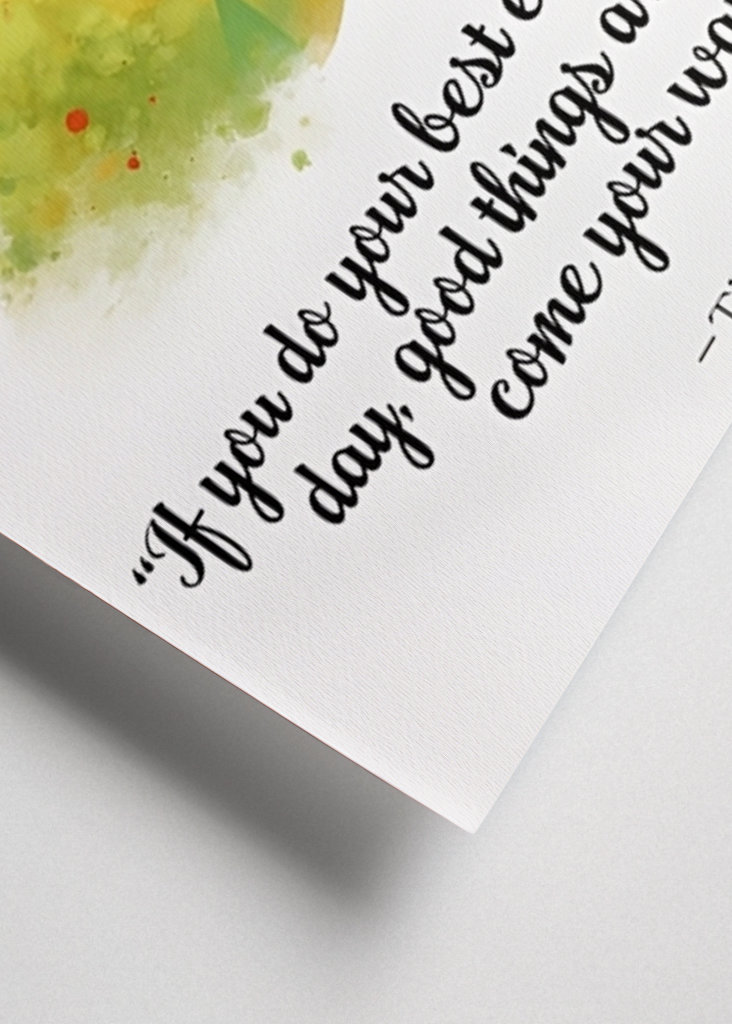 “If you do your best
day, good things
come your